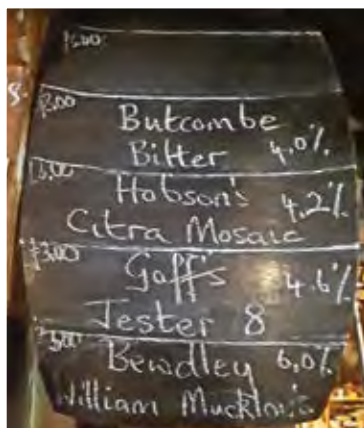 £3.00
Butcombe
Bitter 4.0%
£3.00
Hobson's 4.2%
Citra Mosaic
£3.00
Goff's 4.6%
Jester 8
£3.00
Bewdley 6.0%
William